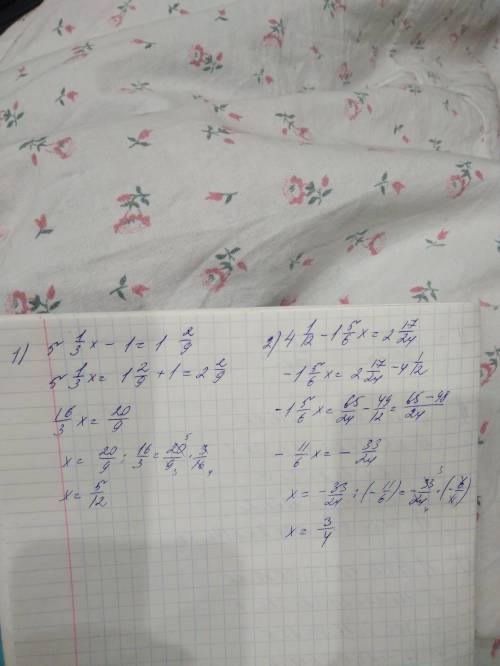 1) 5 1/3 x - 1 = 1 2/9
5 1/3 x = 1 2/9 + 1 = 2 2/9
16/3 x = 20/9
x = 20/9 : 16/3 = 20/9 · 3/16
x = 5/12
2) 4 1/12 - 1 5/6 x = 2 17/24
- 1 5/6 x = 2 17/24 - 4 1/12
- 1 5/6 x = 65/24 - 49/12 = 65 - 98/24
- 11/6 x = - 33/24
x = - 33/24 : (- 11/6) = - 33/24 · (- 6/11)
x = 3/4